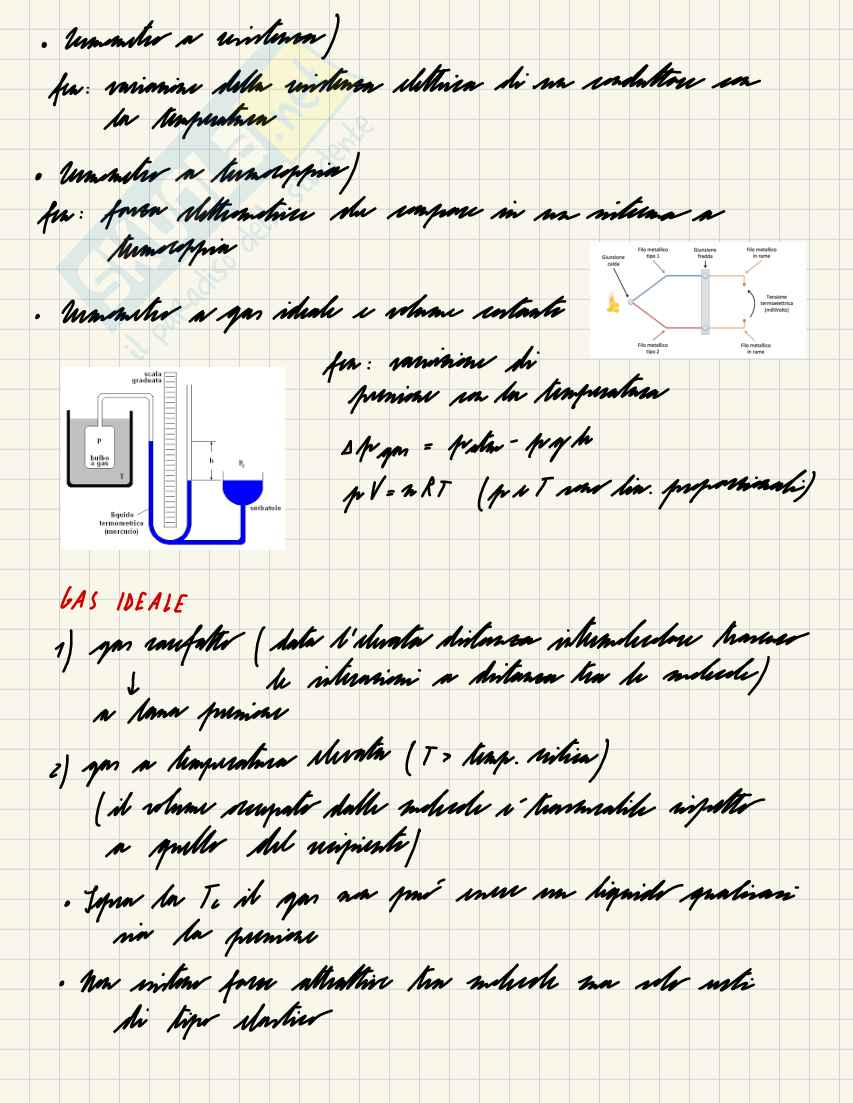 • Termometro a resistenza)
fen: variazione della resistenza elettrica di un conduttore con
la temperatura
• Termometro a termocoppia)
fen: forza elettromotrice che compare in un sistema a
termocoppia
Giunsione calda
Filo metallico tipo 1
Giunsione fredda
Filo metallico in rame
Tensione termoelettrica (millivolts)
Filo metallico tipo 2
Filo metallico in rame
• Termometro a gas ideale e volume costante
fen: variazione di
pressione con la temperatura
Δp gas = p atm - ρ g h
pV = nRT (p e T sono lin. proporzionali)
scala graduata
P
bulbo a gas
T
h
serbatoio
liquido termometrico (mercurio)
GAS IDEALE
1) gas rarefatto (data l'elevata distanza intermolecolare trascuro
↓ le interazioni a distanza tra le molecole)
a bassa pressione
2) gas a temperatura elevata (T > temp. critica)
(il volume occupato dalle molecole è trascurabile rispetto
a quello del recipiente)
• Sopra la Tc il gas non può essere un liquido qualsiasi
sia la pressione
• Non esistono forze attrattive tra molecole ma solo urti
di tipo elastico
SKUOLA.net
il paradiso dello studente